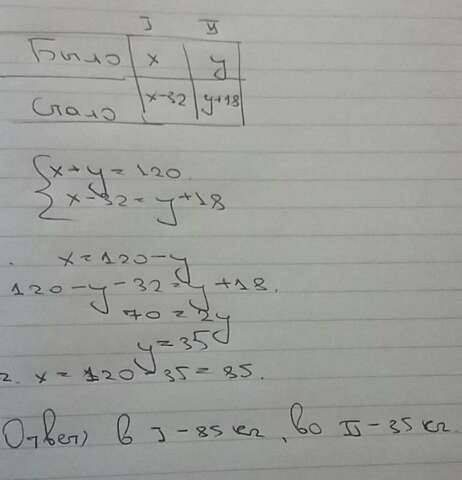 I II
Было x y
Стало x-32 y+18
x+y=120.
x-32=y+18
x=120-y
120-y-32=y+18.
70=2y
y=35
2. x=120-35=85.
Ответ, в I-85кг, во II-35кг.